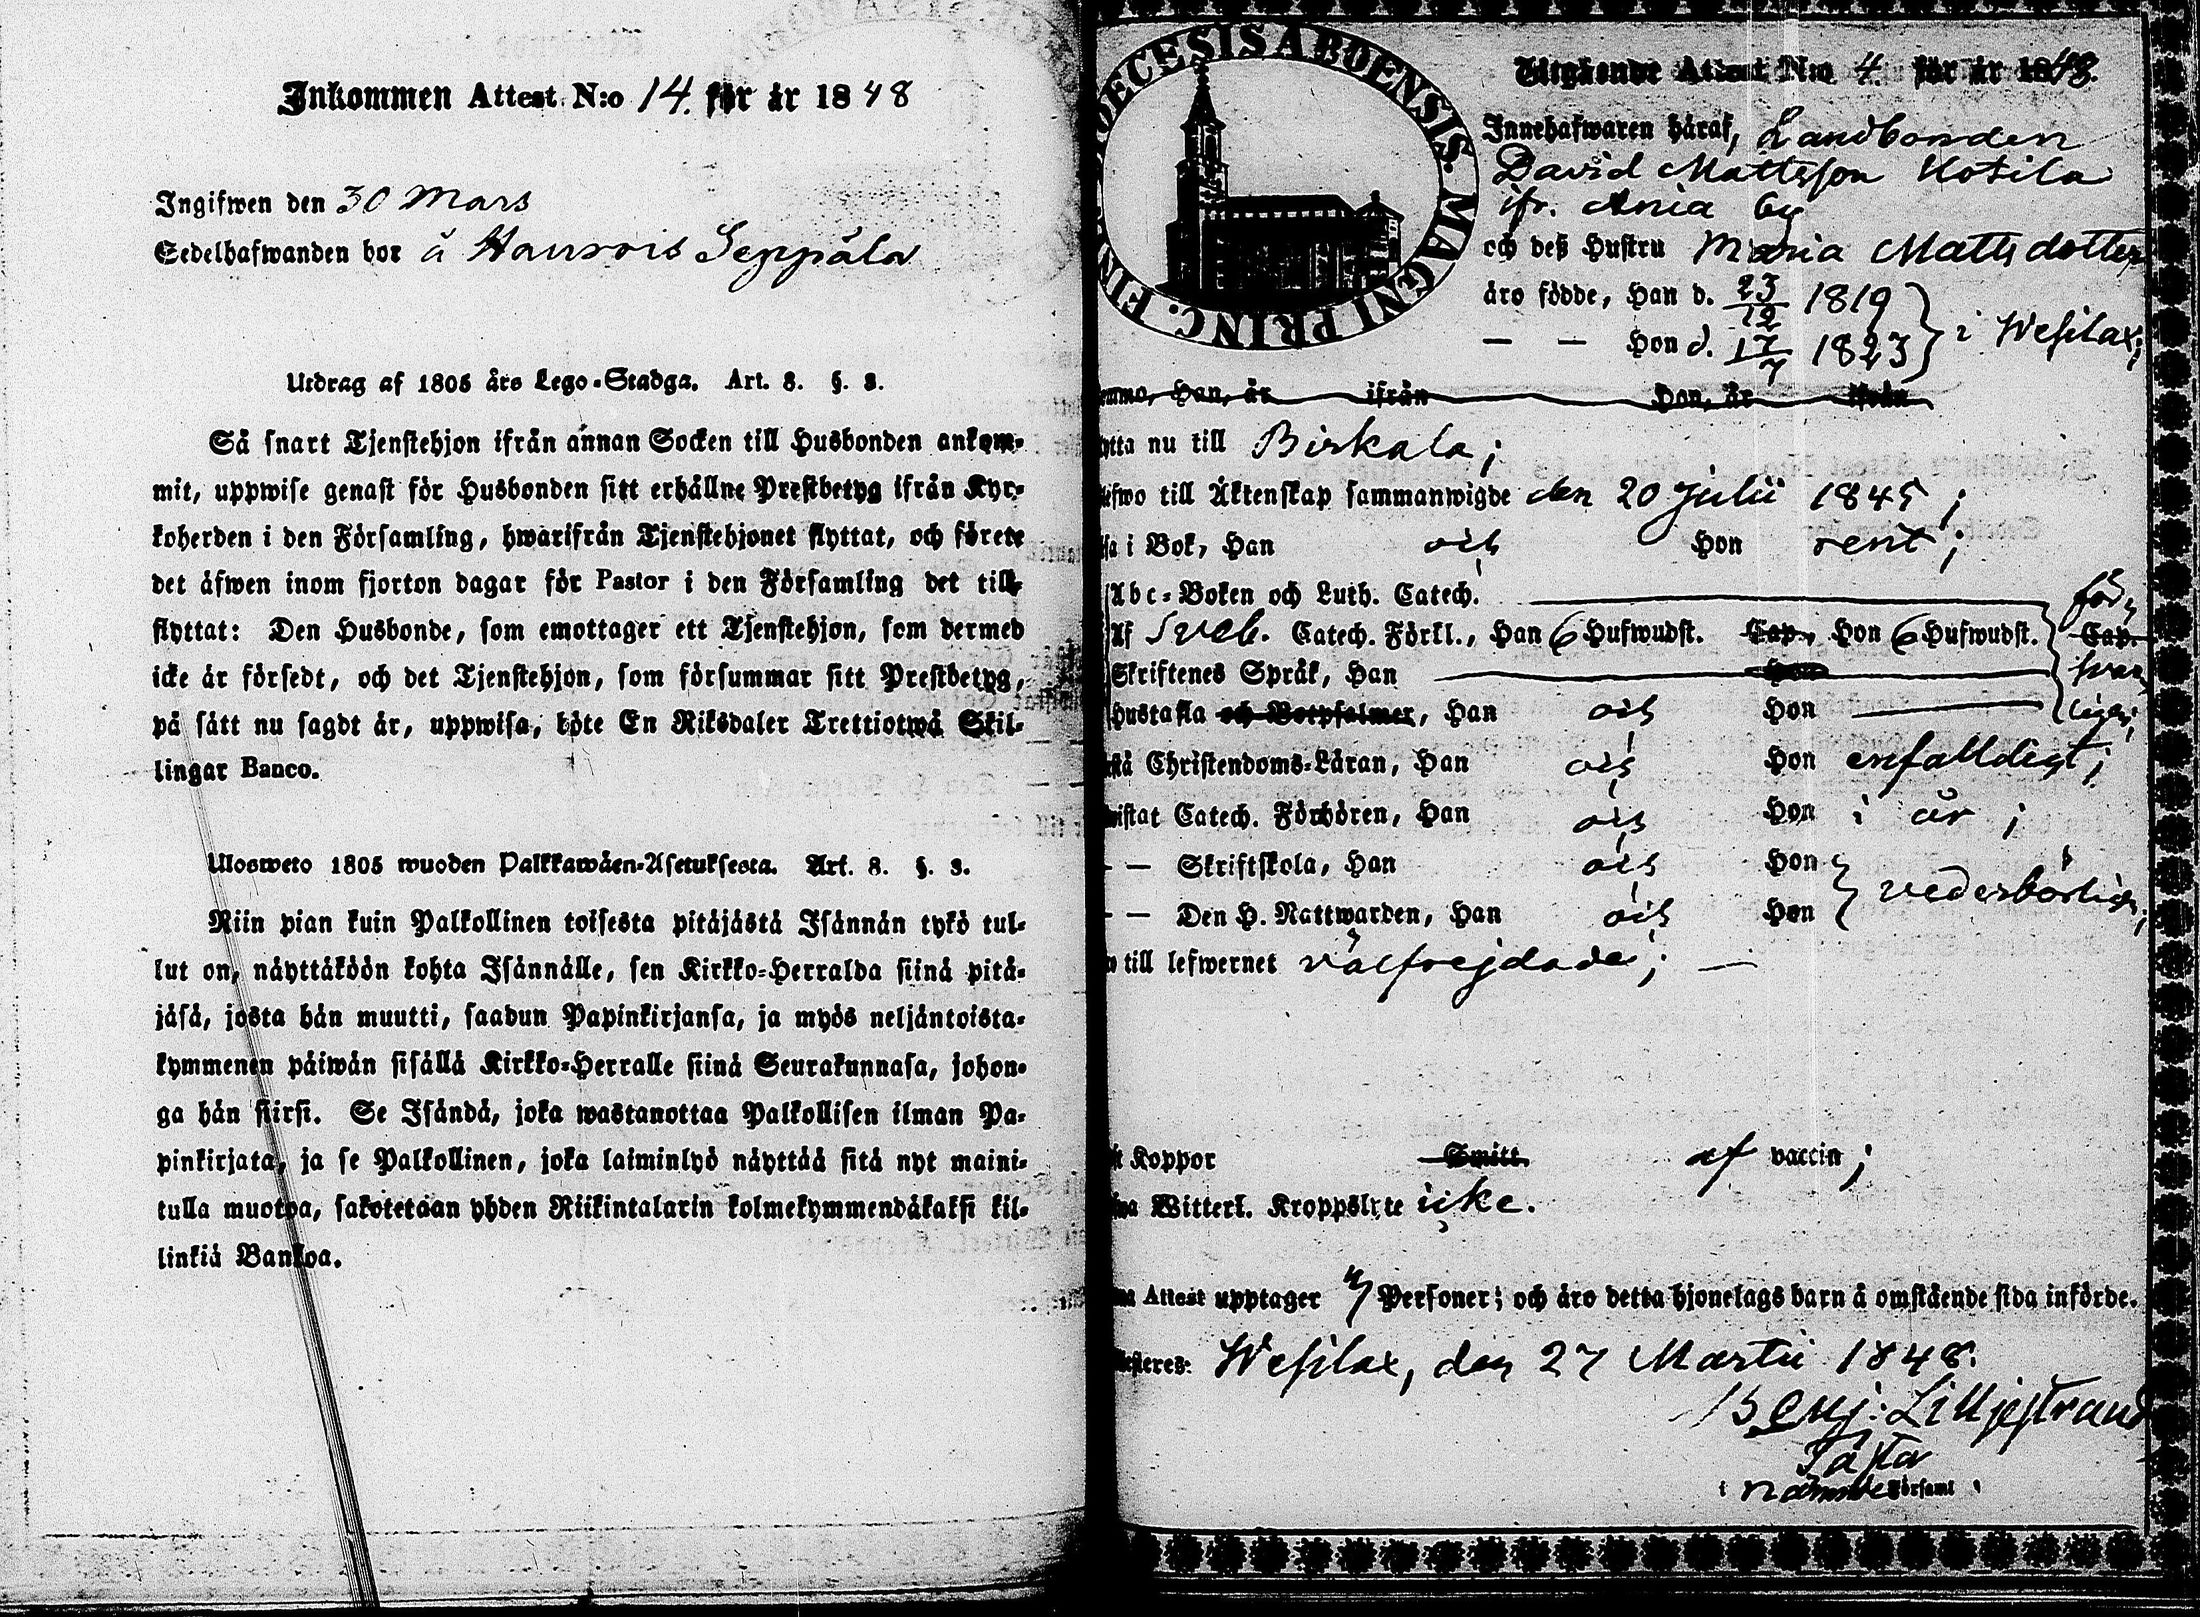 Inkommen Attest N:o 14. för år 1848
Ingifwen den 30 Mars
Sedelhafwanden bor å Hanrois Seppälä
Utdrag af 1805 års Lego-Stadga. Art. 8. §. 3.
Så snart Tjenstehjon ifrån annan Socken till Husbonden ankom-
mit, uppwise genast för Husbonden sitt erhållne Prestbetyg ifrån Kyr-
koherden i den Församling, hwarifrån Tjenstehjonet flyttat, och förete
det äfwen inom fjorton dagar för Pastor i den Församling det till-
flyttat: Den Husbonde, som emottager ett Tjenstehjon, som dermed
icke är försedt, och det Tjenstehjon, som försummar sitt Prestbetyg,
på sätt nu sagdt är, uppwisa, böte En Riksdaler Trettiotwå Skil-
lingar Banco.
Ulosweto 1805 wuoden Palkkawäen-Asetuksesta. Art. 8. §. 3.
Niin pian kuin Palkollinen toisesta pitäjästä Isännän tykö tul-
lut on, näyttäköön kohta Isännälle, sen Kirkko-Herralda siinä pitä-
jäsä, josta hän muutti, saadun Papinkirjansa, ja myös neljäntoista-
kymmenen päiwän sisällä Kirkko-Herralle siinä Seurakunnasa, johon-
ga hän siirsi. Se Isändä, joka wastanottaa Palkollisen ilman Pa-
pinkirjata, ja se Palkollinen, joka laiminlyö näyttää sitä nyt maini-
tulla muotoa, sakotetaan yhden Riikintalarin kolmekymmendäkaksi kil-
linkiä Bankoa.
DIOECESIS ABOENSIS. MAGNI PRINC. FIN
Utgående Attest N:o 4 för år 1848.
Innehafwaren häraf, Landbonden
David Mattsson Uotila
ifr. Ania by
och deß Hustru Maria Mattsdotter
äro födde, Han d. 23/12 1819
— — Hon d. 17/7 1823 } i Wesilax;
emmo, Han, är ifrån Hon, är ifrån
ytta nu till Birkala;
efwo till Äktenskap sammanwigde den 20 Julii 1845;
sa i Bok, Han och Hon rent;
Abc-Boken och Luth. Catech.
Af Sveb. Catech. Förkl., Han 6 Hufwudst. Cap., Hon 6 Hufwudst. Cap.
Skriftenes Språk, Han Hon
Hustafla och Botpsalmer, Han och Hon
rstå Christendoms-Läran, Han och Hon enfalldigt;
wistat Catech. Förhören, Han och Hon i år;
— — Skriftskola, Han och Hon
— — Den H. Nattwarden, Han och Hon } vederbörligen;
o till lefwernet välfrejdade; —
ft Koppor Smitt. af vaccin;
fwa Witterl. Kroppslyte icke.
na Attest upptager Personer; och äro detta hjonelags barn å omstående sida införde.
testeres: Wesilax, den 27 Martii 1848.
Benj: Lilljestrand
i nämnde Församl